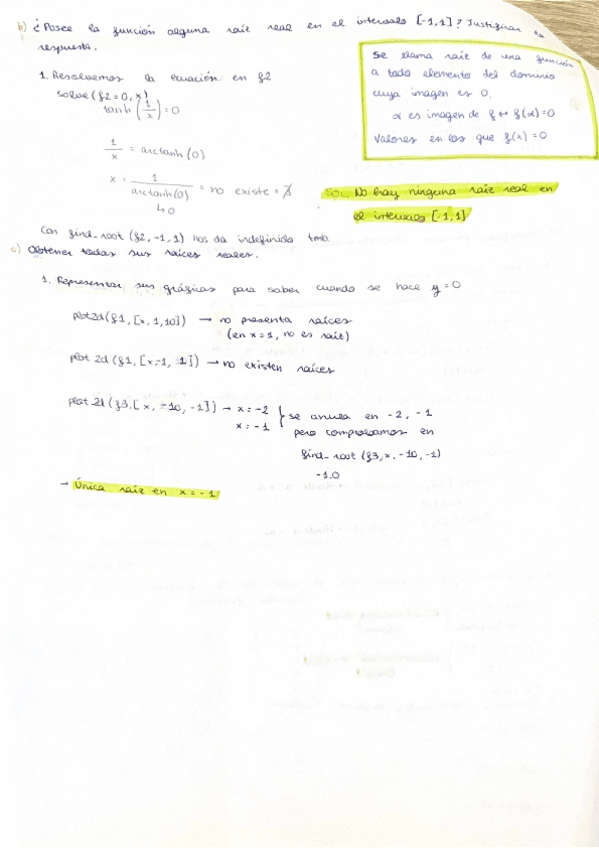 b) ¿Posee la función alguna raíz real en el intervalo [-1,1]? Justificar la
respuesta.
Se llama raíz de una función
a todo elemento del dominio
cuya imagen es 0.
α es imagen de f ↔ f(α)=0
Valores en los que f(x)=0
1. Resolvemos la ecuación en f2
solve(f2=0, x)
tanh (1/x) = 0
1/x = arctanh (0)
x = 1/arctanh(0) = no existe = ∄
↳ 0
SOL. No hay ninguna raíz real en
el intervalo [-1,1]
Con find_root (f2,-1,1) nos da indefinido tmb.
c) Obtener todas sus raíces reales.
1. Representar sus gráficas para saber cuando se hace y=0
plot2d(f1,[x,1,10]) → no presenta raíces
(en x=1, no es raíz)
plot 2d (f1,[x-1, 1]) → no existen raíces
plot 2d (f3,[x, -10, -1]) → x=-2
x=-1
se anula en -2, -1
pero comprobamos en
find_root (f3,x,-10,-1)
-1.0
→ Única raíz en x=-1